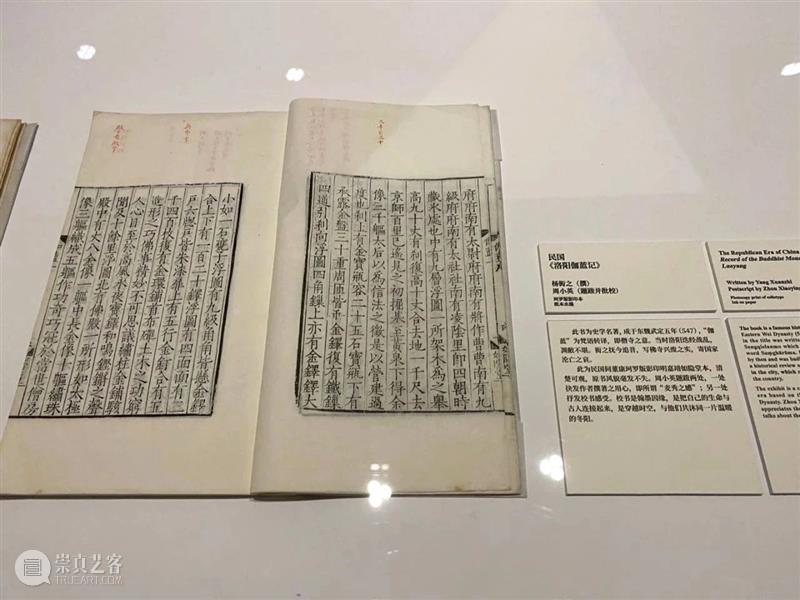 府府南有太尉府府南有將作曹曹南有九
級府府南有太社社南有凌陰里即四朝時
藏冰處也中有九層浮圖一所架木為之舉
高九十丈有刹復高十丈合去地一千尺去
京師百里已遙見之初掘基至黃泉下得金
像三千軀太后以為信法之徵是以營建過
度也刹上有金寶瓶容二十五石寶瓶下有
承露金盤三十重周匝皆垂金鐸復有鐵鎖
四道引刹向浮圖四角鎖上亦有金鐸鐸大
小如一石甕子浮圖有九級角角皆懸金鐸
合上下有一百二十鐸浮圖有四面面有三
戶六牕戶皆朱漆扉上有五行金釘合有五
千四百枚復有金鐶鋪首布殫土木之功窮
造形之巧佛事精妙不可思議繡柱金鋪駭
人心目至於高風永夜寶鐸和鳴鏗鏘之聲
聞及十餘里浮圖北有佛殿一所形如太極
殿中有丈八金像一軀中長金像十軀繡珠
像三軀織成五軀作功奇巧冠於當世僧房
民国
《洛阳伽蓝记》
杨衒之（撰）
周小英（题跋并批校）
珂罗版影印本
纸本水墨
此书为史学名著，成于东魏武定五年（547），“伽
蓝”为梵语转译，即僧寺之意。当时洛阳迭经战乱，
凋敝不堪。衒之抚今追昔，写佛寺兴废之实，寄国家
沦亡之哀。
此为民国间董康珂罗版影印明嘉靖如隐堂本，清
楚可观，原书风貌毫发不失。周小英题跋两处，一处
抉发作者撰著之用心，即所谓“麦秀之感”；另一处
抒发校书感受。校书是翰墨因缘，是把自己的生命与
古人连接起来，是穿越时空，与他们共沐同一片温暖
的冬阳。
The Republican Era of China
Record of the Buddhist Mona
Luoyang
Written by Yang Xuanzhi
Postscript by Zhou Xiaoying
Photocopy print of collotype
Ink on paper
The book is a famous histo
Eastern Wei Dynasty (547)
in the title was written
the country.
崇真艺客
WWW.TRUEART.COM